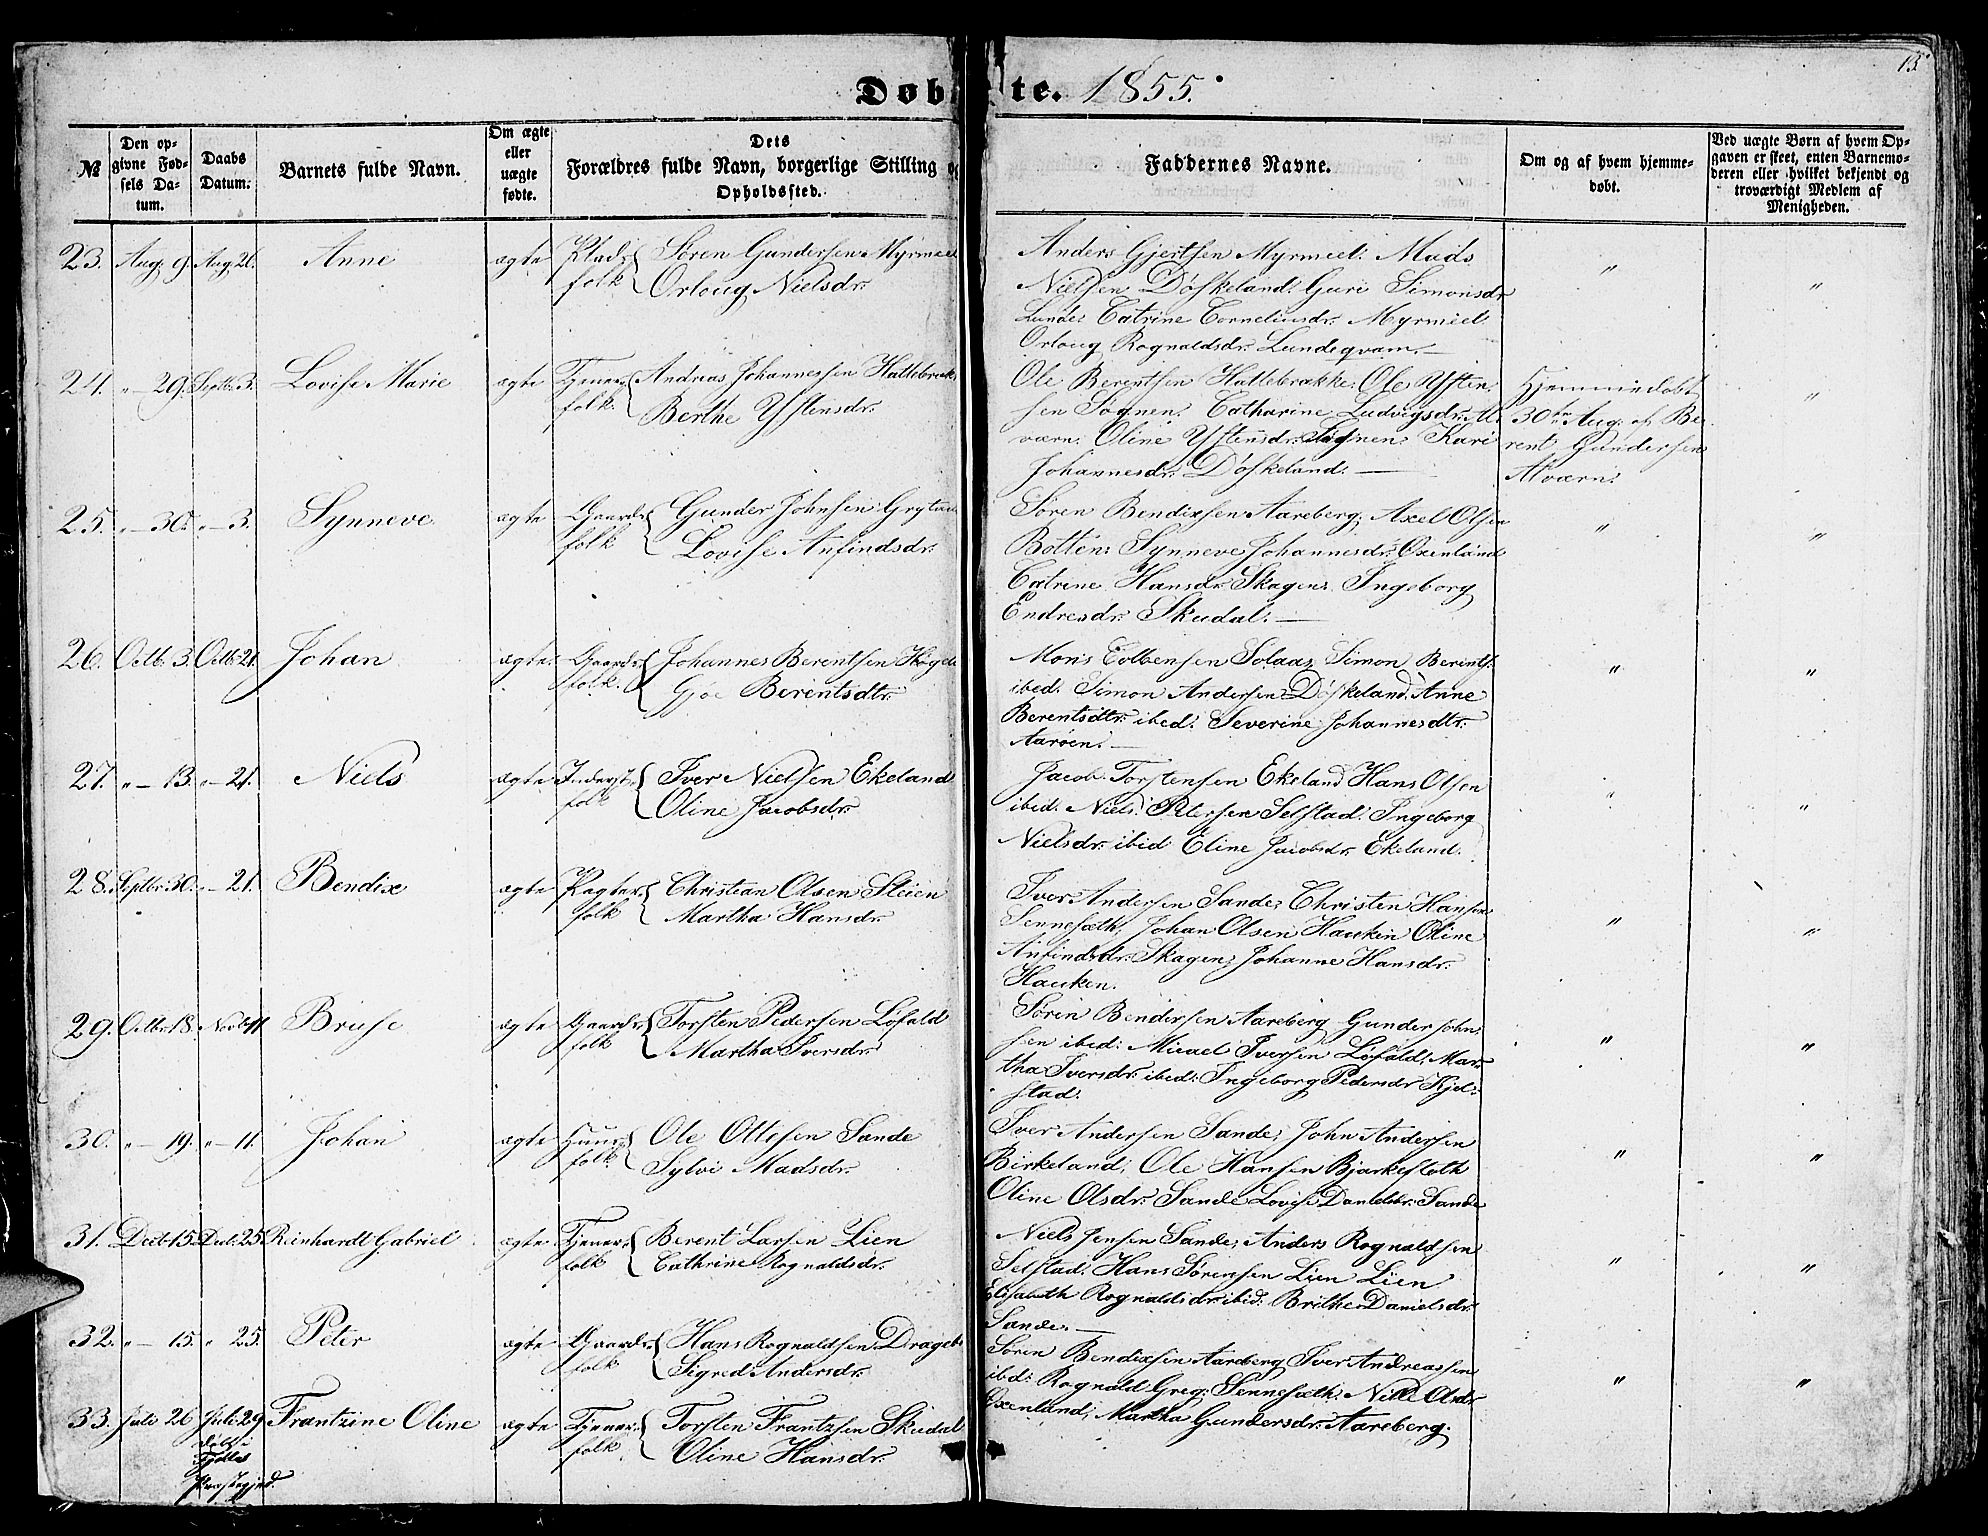 15
Døbte. 1855.
№
Den opgivne Fødsels Datum.
Daabs Datum.
Barnets fulde Navn.
Om ægte eller uægte fødte.
Dets Forældres fulde Navn, borgerlige Stilling og Opholdssted.
Faddernes Navne.
Om og af hvem hjemmedøbt.
Ved uægte Børn af hvem Opgaven er skeet, enten Barnemoderen eller hvilket bekjendt og troværdigt Medlem af Menigheden.
23. Aug. 9. Aug. 26. Anne ægte Pladsfolk Søren Gundersen Myrmel
Orloug Nielsdr.
Anders Gjertsen Myrmel: Mads
Nielsen Døskeland: Guri Simonsdr
Lunde: Catrine Corneliusdr. Myrmel:
Orloug Rognaldsdr. Lundeqvam.—
" "
24. " — 29. Septbr. 3. Lovise Marie ægte Tjenerfolk. Andreas Johannessen Hallebrække
Berthe Ystensdr.
Ole Berentsen Hallebrække: Ole Ysten
sen Søgnen: Catharine Ludvigsdr. Al
værn. Oline Ystensdr. Søgnen: Kari
Johannesdr. Døskeland. —
Hjemmedøbt
30te Aug. af Be
rent Gundersen
Alværn.
"
25. " — 30. " — 3. Synneve ægte Gaardfolk Gunder Johnsen Grytau
Lovise Anfindsdr.
Søren Bendixsen Aareberg, Axel Olsen
Botten: Synneve Johannesdr. Oxenland
Catrine Hansdr. Skagen: Ingeborg
Endresdr. Skudal. —
" "
26. Octb. 3. Octb. 21. Johan ægte Gaardfolk. Johannes Berentsen
Gjøe Berentsdtr.
Mons Colbensen Solaas, Simon Berents.
ibed: Simon Andersen Døskeland. Anne
Berentsdtr. ibed: Severine Johannesdtr.
Aarøen. —
" "
27. " — 13. " — 21. Niels ægte Inderstfolk Iver Nielsen Ekeland
Oline Jacobsdr.
Jacob Torstensen Ekeland Hans Olsen
ibed: Niels Petersen Selstad: Ingeborg
Nielsdr. ibid Eline Jacobsdr. Ekeland.
" "
28. Septbr. 30. " — 21. Bendix ægte Pagterfolk Christian Olsen Steien
Martha Hansdr.
Iver Andersen Sande, Christen Hansen
Sennesæth, Johan Olsen Hauken Oline
Anfindsdr. Skagen, Johanne Hansdr.
Hauken.
" "
29. Octbr. 18. Novb. 11. Bruse ægte Gaardfolk Torsten Pedersen Løfald
Martha Iversdr.
Søren Bendixsen Aareberg Gunder John
sen ibed: Micael Iversen Løfald, Mar
tha Iversdr. ibed: Ingeborg Pedersdr Kjel
stad.
" "
30. " — 19. " — 11. Johan ægte Huusfolk Ole Ottesen Sande
Sylvi Madsdr.
Iver Andersen Sande, John Andersen
Birkeland, Ole Hansen Bjørkesloth
Oline Olsdr. Sande Lovise Danielsdr. Sande
" "
31. Decb. 15. Decb. 25. Reinhardt Gabriel ægte Tjenerfolk Berent Larsen Lien
Cathrine Rognaldsdr.
Niels Jensen Sande, Anders Rognaldsen
Selstad: Hans Sørensen Lien Lien
Elisabeth Rognaldsdr. ibid: Brithe Danielsdr.
Sande. —
" "
32. " — 15. " 25. Peter ægte Gaardfolk Hans Rognaldsen Dragebø
Sigred Andersdr.
Søren Bendixsen Aareberg Iver Andreassen
ibd: Rognald Greg: Sennesæth. Nille Olsdr.
Oxenland, Martha Gundersdr. Aareberg.
" "
33. Juli 26 Juli 29 Frantzine Oline ægte Tjenerfolk Torsten Frantzsen Skudal
Oline Hansdr.
døbt i
Præstegjeld.